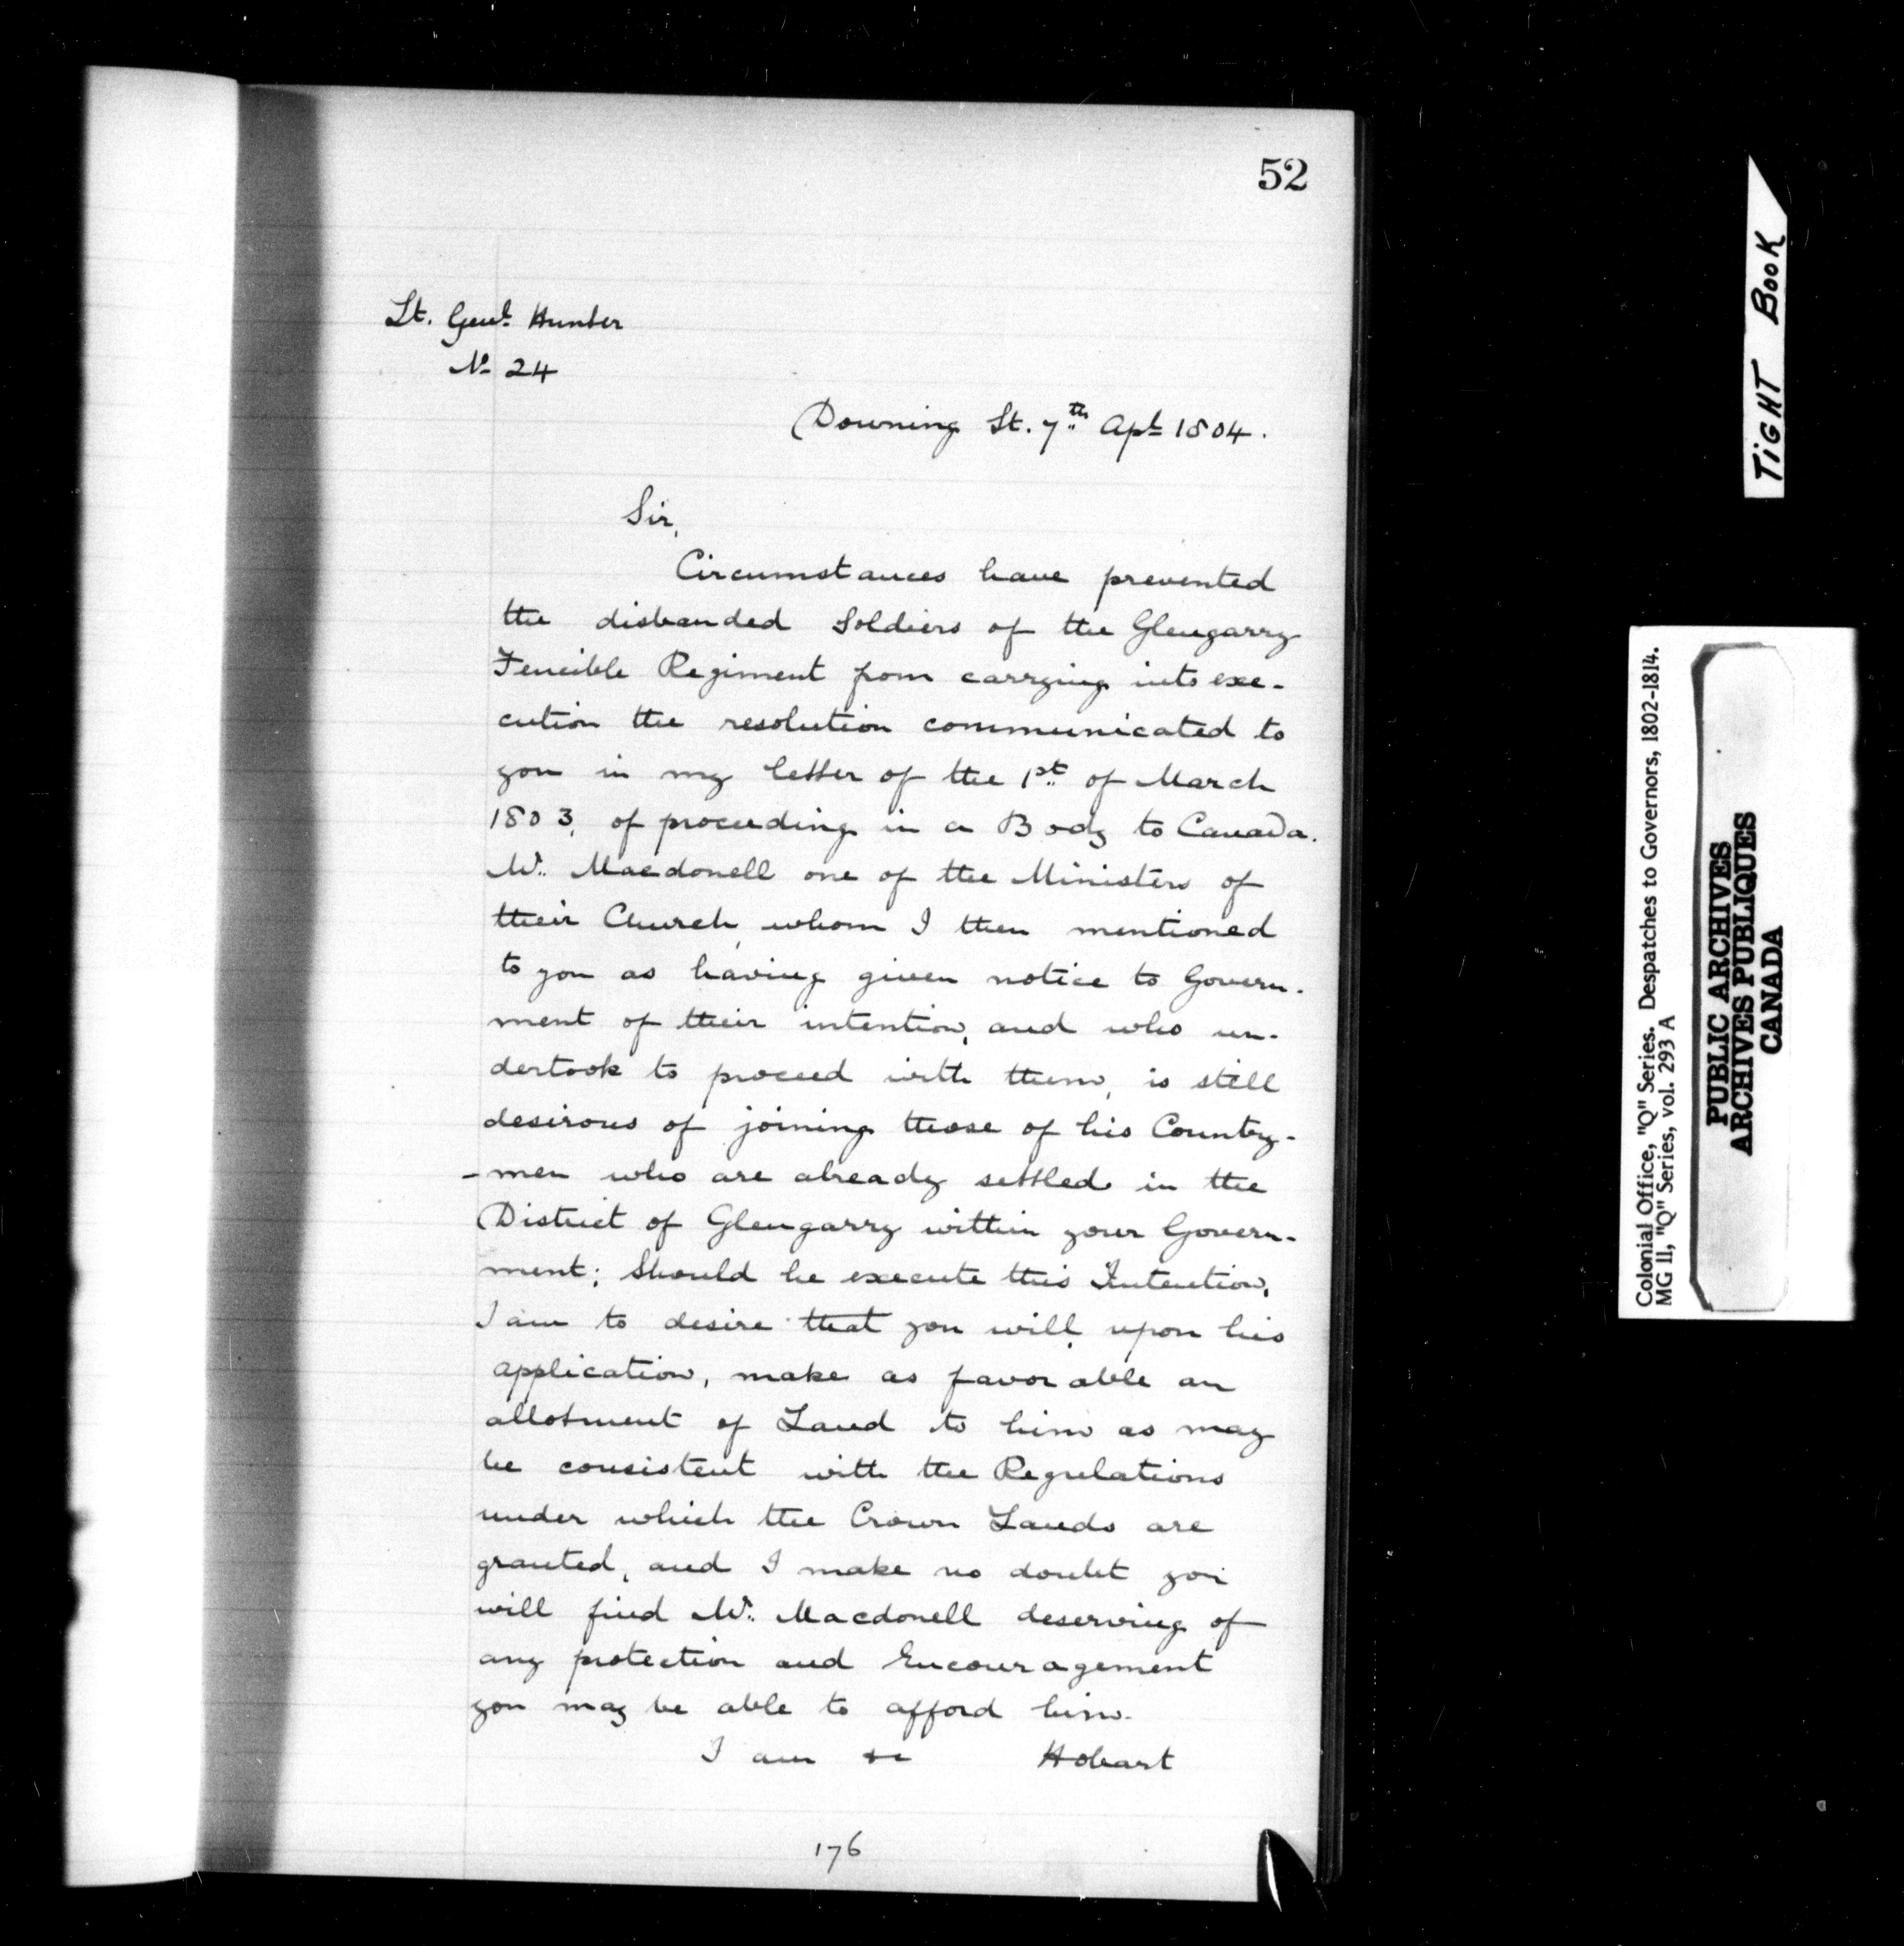 52
Lt. Genl. Hunter
No. 24
Downing St. 7th Apl 1804.
Sir,
Circumstances have prevented
the disbanded Soldiers of the Glengarry
Fencible Regiment from carrying into exe-
cution the resolution communicated to
you in my letter of the 1st of March
1803, of proceeding in a Body to Canada.
Mr. Macdonell one of the Ministers of
their Church, whom I then mentioned
to you as having given notice to Govern-
ment of their intention, and who un-
dertook to proceed with them, is still
desirous of joining those of his Country-
-men who are already settled in the
District of Glengarry within your Govern-
ment; Should he execute this Intention,
I am to desire that you will, upon his
application, make as favorable an
allotment of Land to him as may
be consistent with the Regulations
under which the Crown Lands are
granted, and I make no doubt you
will find Mr. Macdonell deserving of
any protection and Encouragement
you may be able to afford him.
I am &c Hobart
176
TIGHT BOOK
Colonial Office, "Q" Series. Despatches to Governors, 1802-1814.
MG 11, "Q" Series, vol. 293 A
PUBLIC ARCHIVES
ARCHIVES PUBLIQUES
CANADA